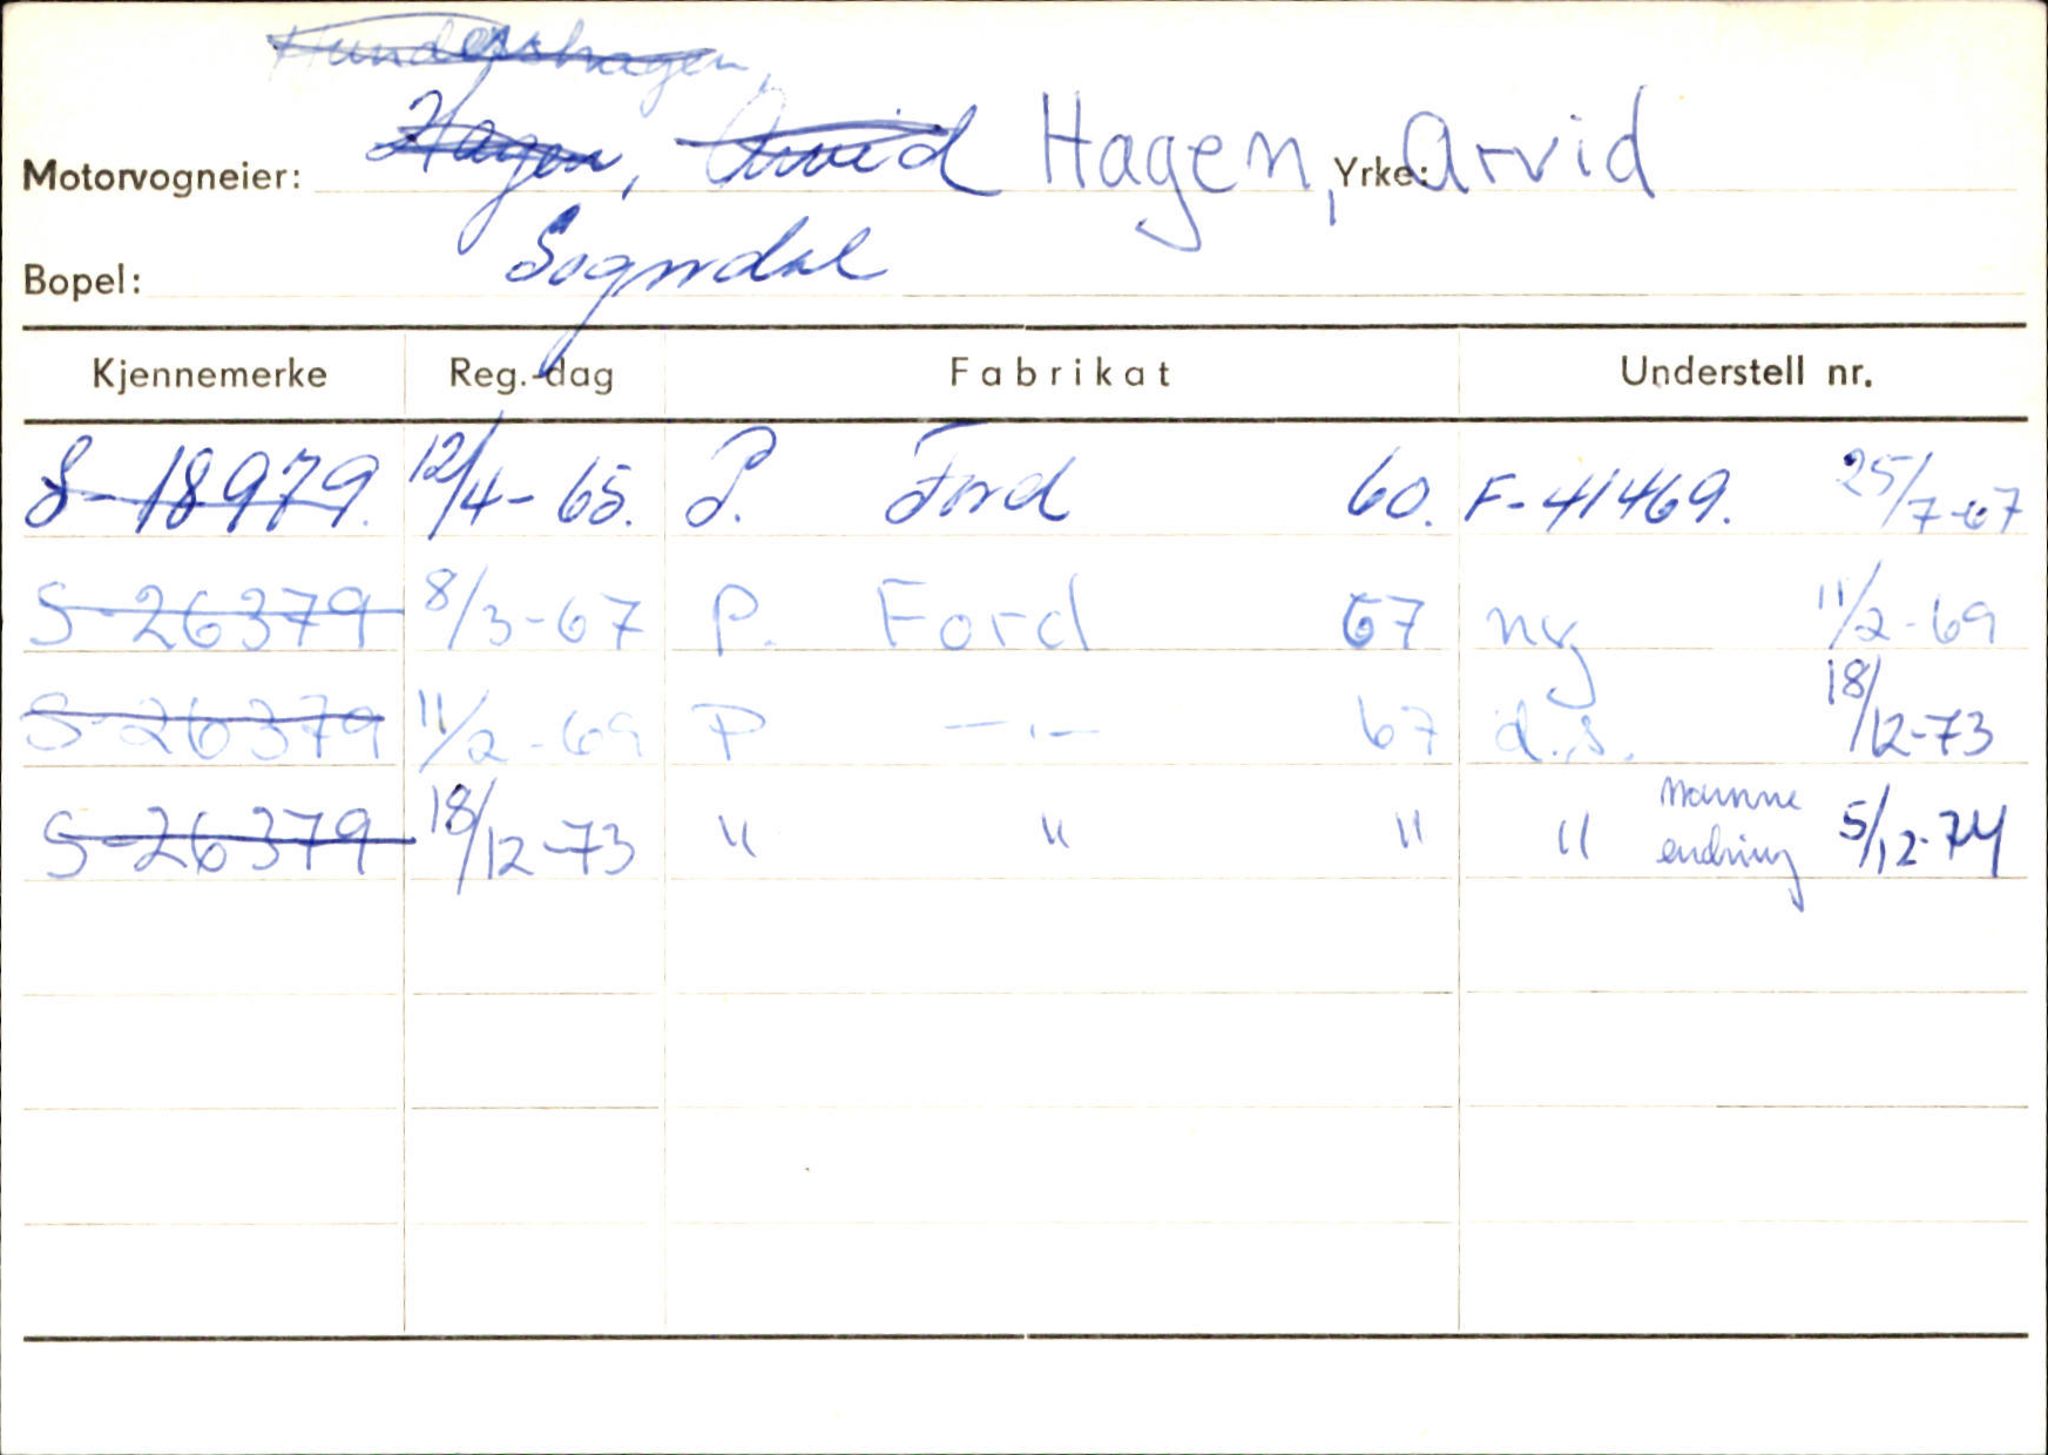 Hundershagen,
Motorvogneier: Hagen, Arvid Hagen, Yrke: Arvid
Bopel: Sogndal
Kjennemerke Reg.-dag Fabrikat Understell nr.
S-18979. 12/4-65. P. Ford 60. F-41469. 25/7-67
S-26379 8/3-67 P. Ford 67 ny 11/2-69
S-26379 11/2-69 P —·— 67 d.s. 18/12-73
S-26379 18/12-73 " " " " Namne endring 5/12-74